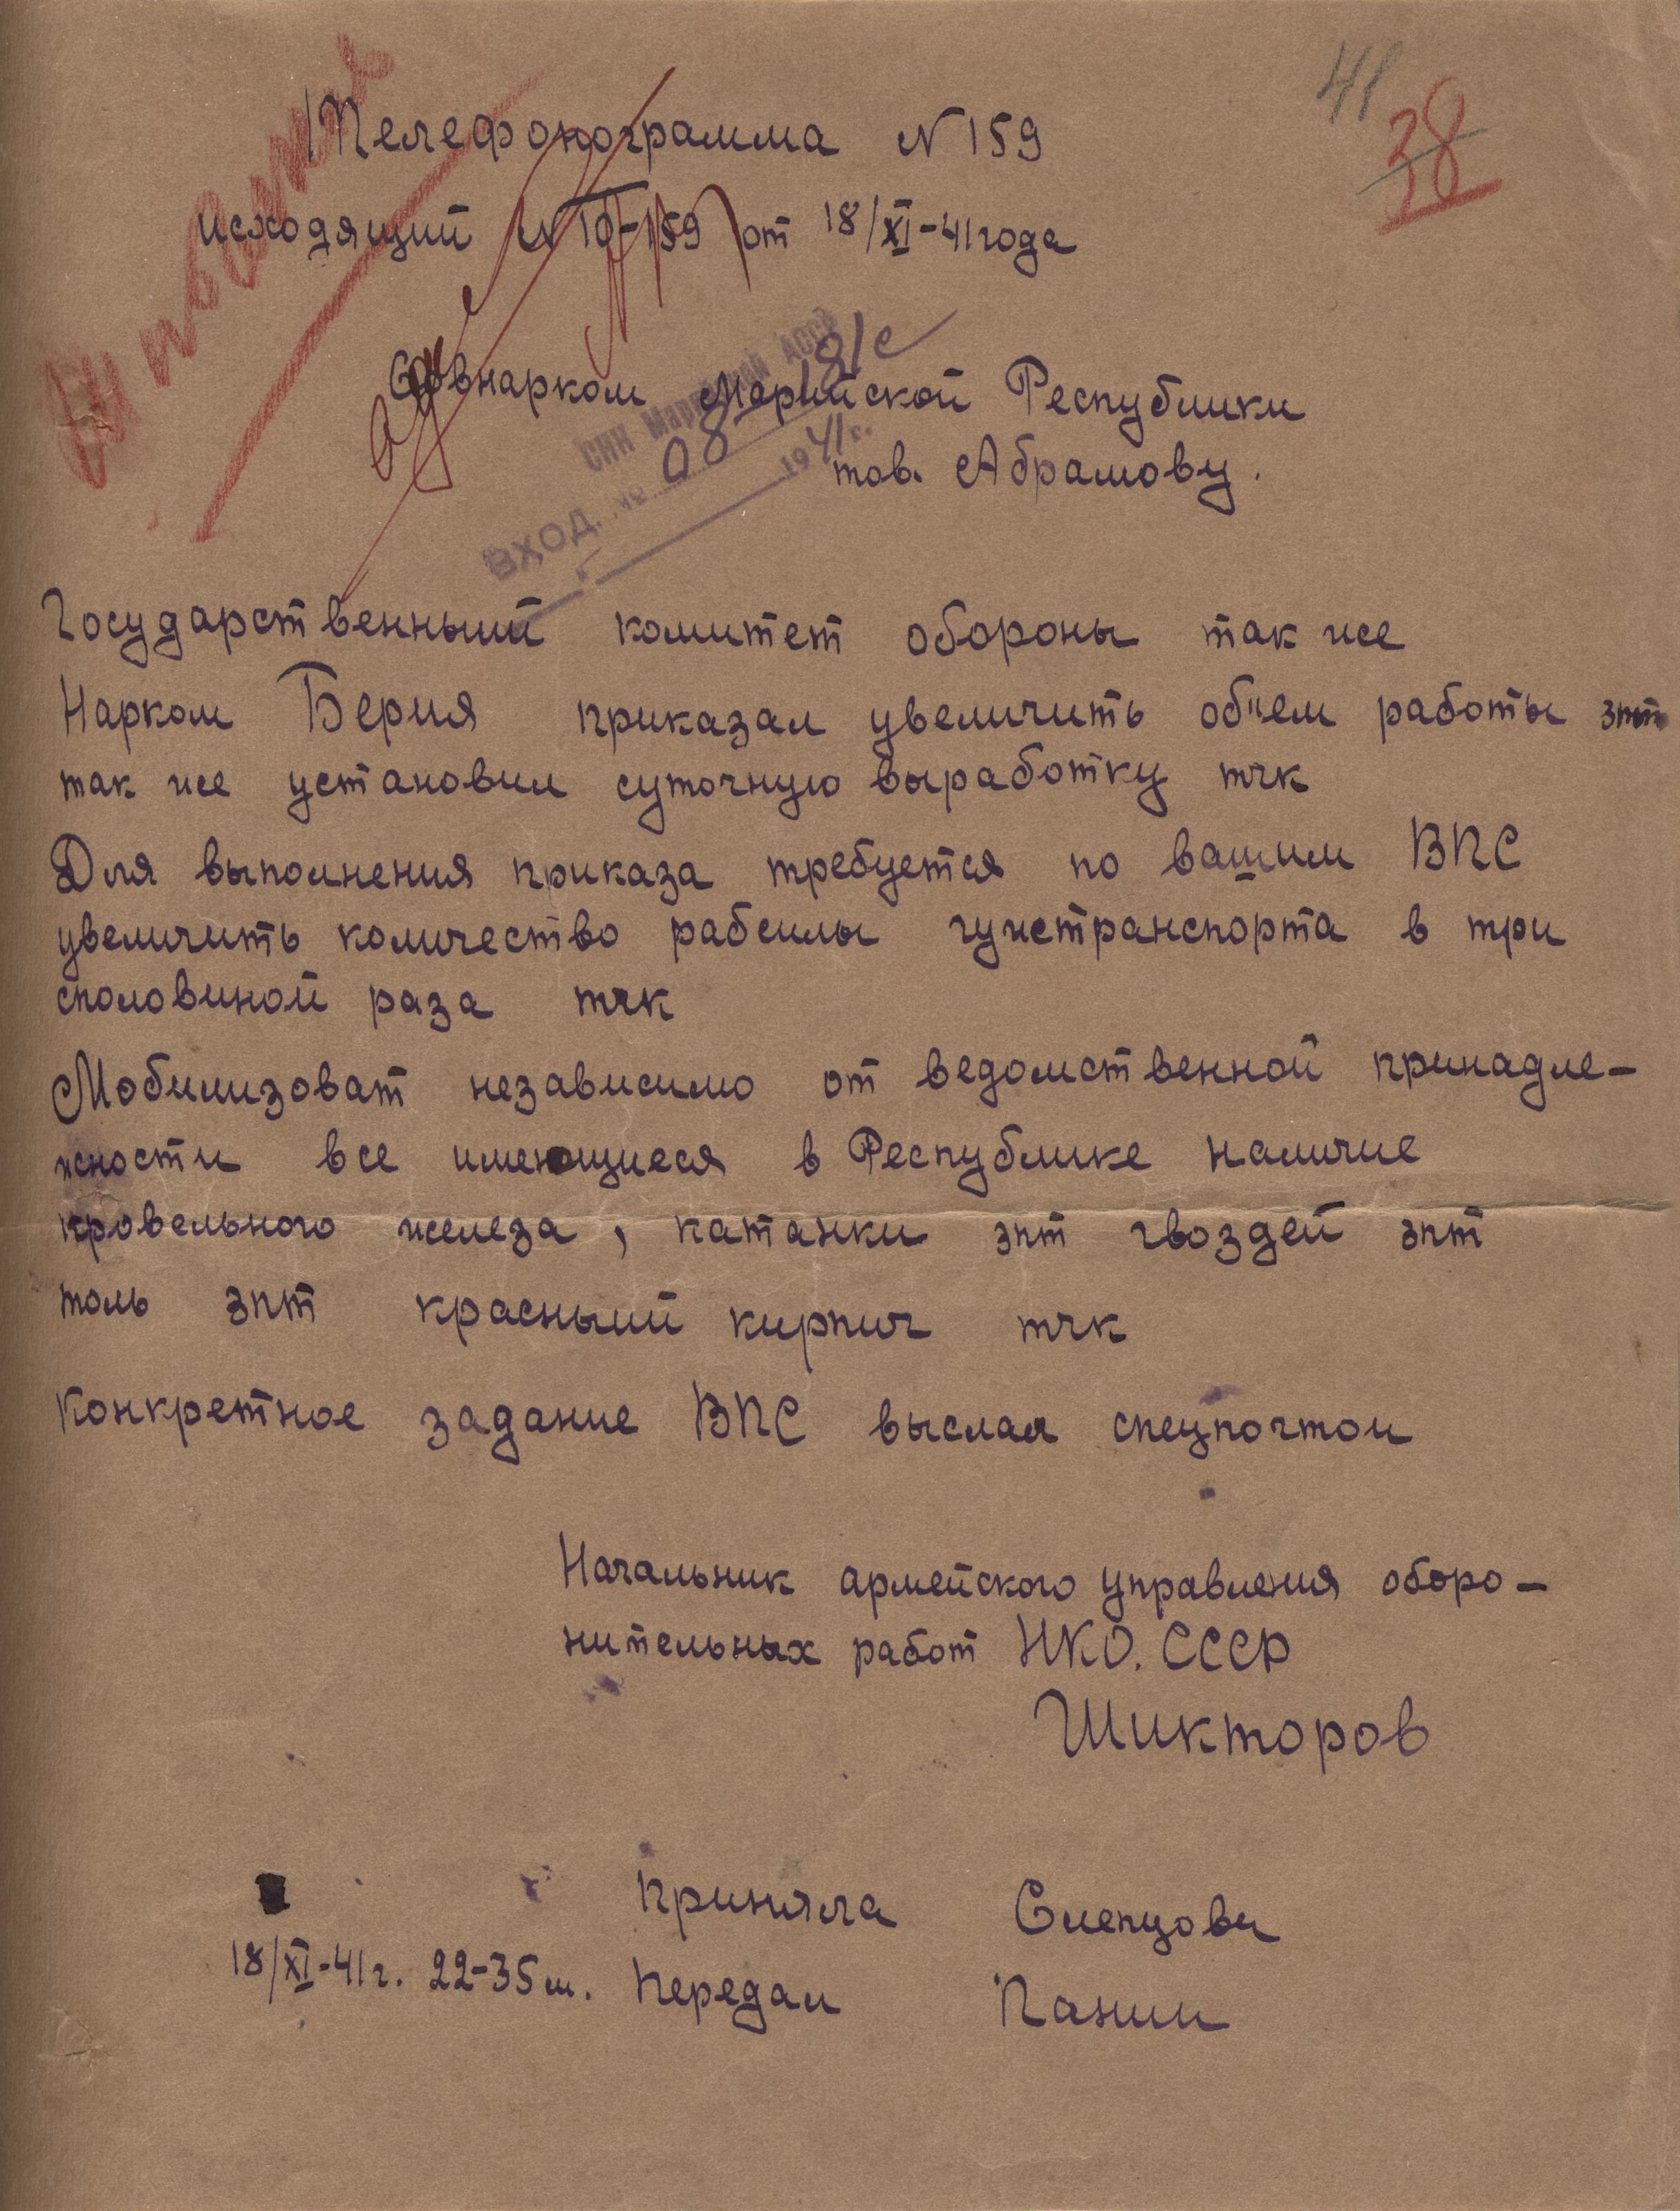 41
38
Телефонограмма N 159
исходящий N 10-159 от 18/XI-41 года
СНК Марийской АССР
Совнарком Марийской Республики
ВХОД. № 08
1941 г.
тов. Абрамову.
Государственный комитет обороны так же
Нарком Берия приказал увеличить об"ем работы зпт
так же установил суточную выработку тчк
Для выполнения приказа требуется по вашим ВПС
увеличить количество рабсилы гужтранспорта в три
споловиной раза тчк
Мобилизоват независимо от ведомственной принадле-
жности все имеющиеся в Республике наличие
кровельного железа, катанки зпт гвоздей зпт
толь зпт красный кирпич тчк
Конкретное задание ВПС выслал спецпочтои
Начальник армейского управления оборо-
нительных работ НКО. СССР
Шикторов
Приняла Слепцова
18/XI-41 г. 22-35 м. Передал Панин